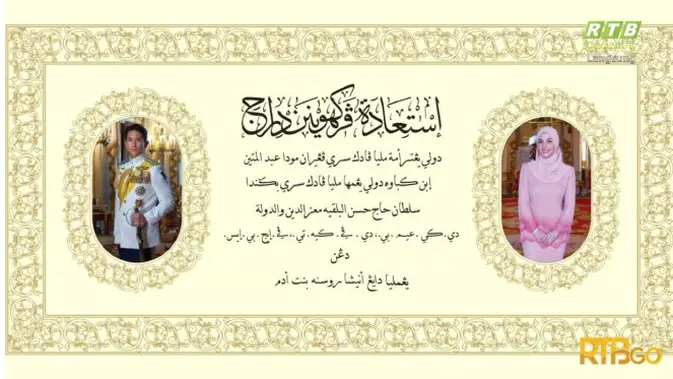 RTB
Langsung
إستعادة ڤركهوينن دراج
دولي يڠترأمة مليا ڤادك سري ڤڠيران مودا عبد المتين
إبن كباوه دولي يڠمها مليا ڤادك سري بڬندا
سلطان حاج حسن البلقيه معزالدين والدولة
دي.كي.عيم.بي،، دي. ڤي. كيه.تي.، ڤي.إيچ.بي.إيس.
دڠن
يڠمليا دايڠ أنيشا روسنه بنت أدم
RTBGO